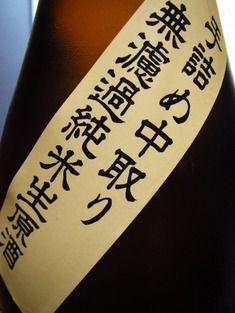 手詰め中取り
無濾過純米生原酒